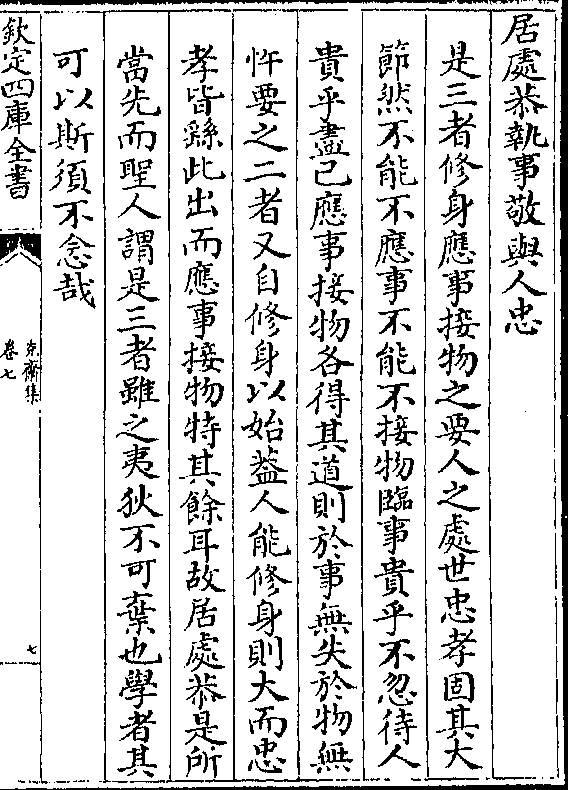 居處恭執事敬與人忠
是三者修身應事接物之要人之處世忠孝固其大
節然不能不應事不能不接物臨事貴乎不忽待人
貴乎盡己應事接物各得其道則於事無失於物無
忤要之二者又自修身以始葢人能修身則大而忠
孝皆繇此出而應事接物特其餘耳故居處恭是所
當先而聖人謂是三者雖之夷狄不可棄也學者其
可以斯須不念哉
欽定四庫全書
克齋集
卷七
七